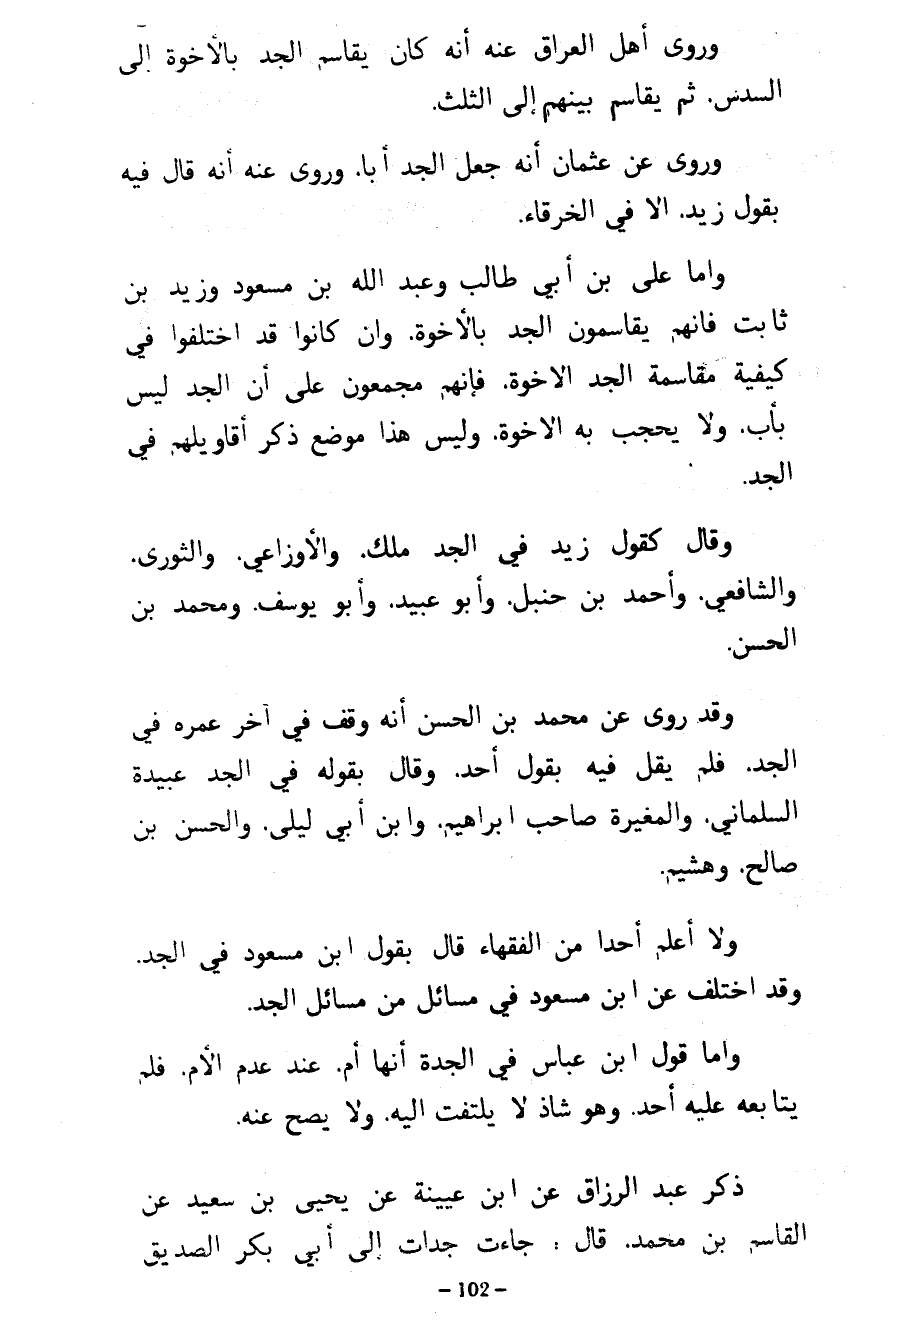 وروى أهل العراق عنه أنه كان يقاسم الجد بالأخوة إلى
السدس. ثم يقاسم بينهم إلى الثلث.
وروى عن عثمان أنه جعل الجد أبا. وروى عنه أنه قال فيه
بقول زيد. الا في الخرقاء.
واما على بن أبي طالب وعبد الله بن مسعود وزيد بن
ثابت فانهم يقاسمون الجد بالأخوة. وان كانوا قد اختلفوا في
كيفية مقاسمة الجد الاخوة. فإنهم مجمعون على أن الجد ليس
بأب. ولا يحجب به الاخوة. وليس هذا موضع ذكر أقاويلهم في
الجد.
وقال كقول زيد في الجد ملك. والأوزاعي. والثورى.
والشافعي. وأحمد بن حنبل. وأبو عبيد. وأبو يوسف. ومحمد بن
الحسن.
وقد روى عن محمد بن الحسن أنه وقف في آخر عمره في
الجد. فلم يقل فيه بقول أحد. وقال بقوله في الجد عبيدة
السلماني. والمغيرة صاحب ابراهيم. وابن أبي ليلى. والحسن بن
صالح. وهشيم.
ولا أعلم أحدا من الفقهاء قال بقول ابن مسعود في الجد.
وقد اختلف عن ابن مسعود في مسائل من مسائل الجد.
واما قول ابن عباس في الجدة أنها أم. عند عدم الأم. فلم
يتابعه عليه أحد. وهو شاذ لا يلتفت اليه. ولا يصح عنه.
ذكر عبد الرزاق عن ابن عيينة عن يحيى بن سعيد عن
القاسم بن محمد. قال : جاءت جدات إلى أبي بكر الصديق
– 102 –